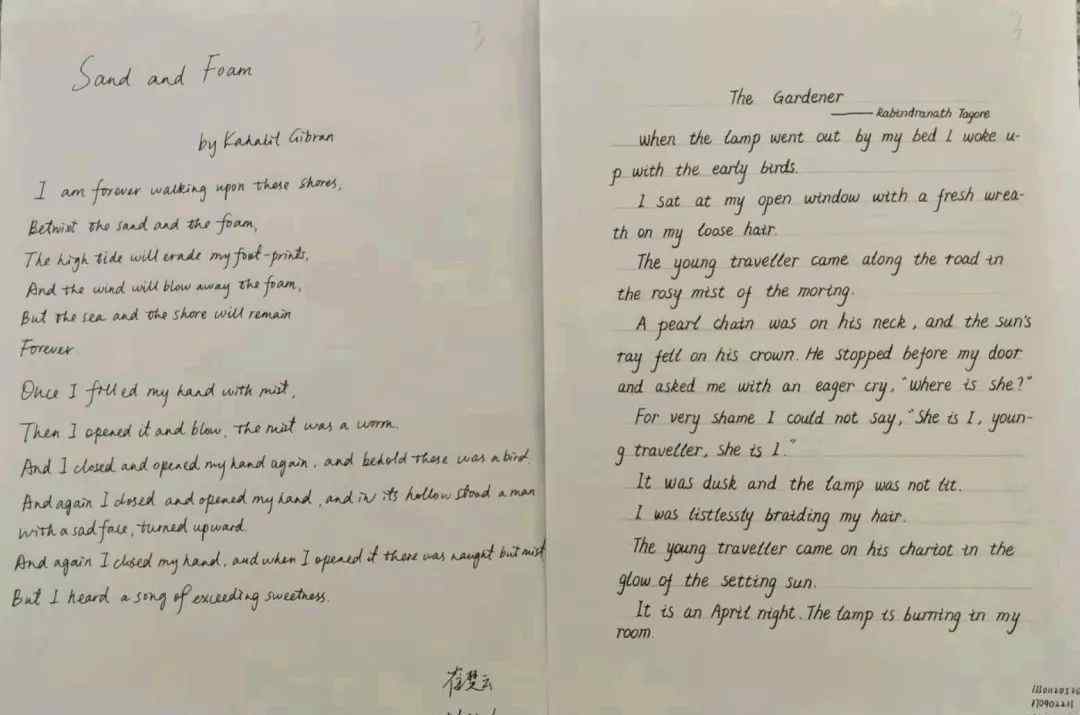 3
Sand and Foam
by Kahalil Gibran
I am forever walking upon these shores,
Betwixt the sand and the foam,
The high tide will erade my foot-prints,
And the wind will blow away the foam,
But the sea and the shore will remain
Forever.
Once I filled my hand with mist,
Then I opened it and blow, the mist was a worm.
And I closed and opened my hand again, and behold there was a bird.
And again I closed and opened my hand, and in its hollow stood a man
with a sad face, turned upward.
And again I closed my hand, and when I opened it there was naught but mist
But I heard a song of exceeding sweetness.
3
The Gardener
—— Rabindranath Tagore
When the lamp went out by my bed I woke u-
p with the early birds.
I sat at my open window with a fresh wrea-
th on my loose hair.
The young traveller came along the road in
the rosy mist of the moring.
A pearl chain was on his neck, and the sun's
ray fell on his crown. He stopped before my door
and asked me with an eager cry, "where is she?"
For very shame I could not say, "She is I, youn-
g traveller, she is I."
It was dusk and the lamp was not lit.
I was listlessly braiding my hair.
The young traveller came on his chariot in the
glow of the setting sun.
It is an April night. The lamp is burning in my
room.